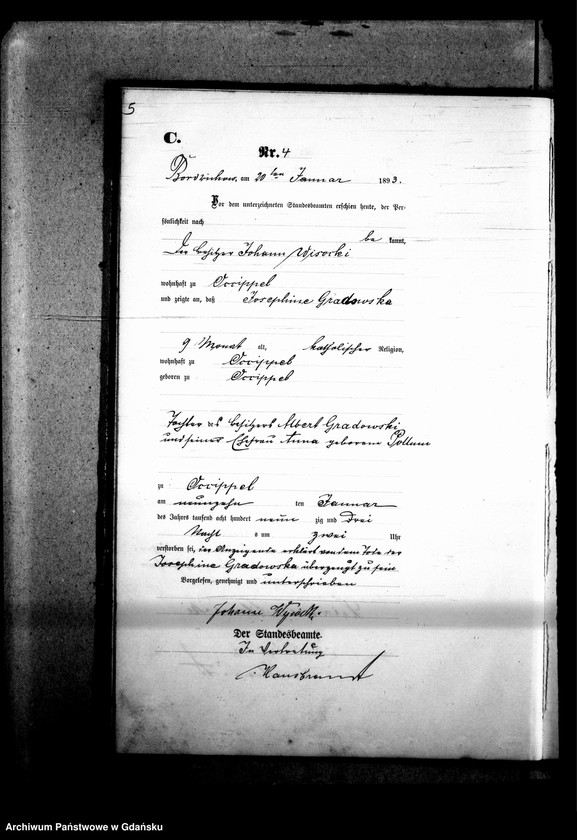 5
C.
Nr. 4
Bordzichow, am 20ten Januar 1893.
Vor dem unterzeichneten Standesbeamten erschien heute, der Per-
sönlichkeit nach
be kannt,
Der Besitzer Johann Wisocki
wohnhaft zu Occippel
und zeigte an, daß Josephine Gradowska
9 Monat alt, katholischer Religion,
wohnhaft zu Occippel
geboren zu Occippel
Tochter des Besitzers Albert Gradowski
und seiner Ehefrau Anna geborene Pollum
zu Occippel
am neunzehn ten Januar
des Jahrs tausend acht hundert neun zig und Drei
Nacht s um zwei Uhr
verstorben sei, der Anzeigende erklärt von dem Tode der
Josephine Gradowska überzeugt zu sein
Vorgelesen, genehmigt und unterschrieben
Johann
Der Standesbeamte.
In Vertretung
Archiwum Państwowe w Gdańsku